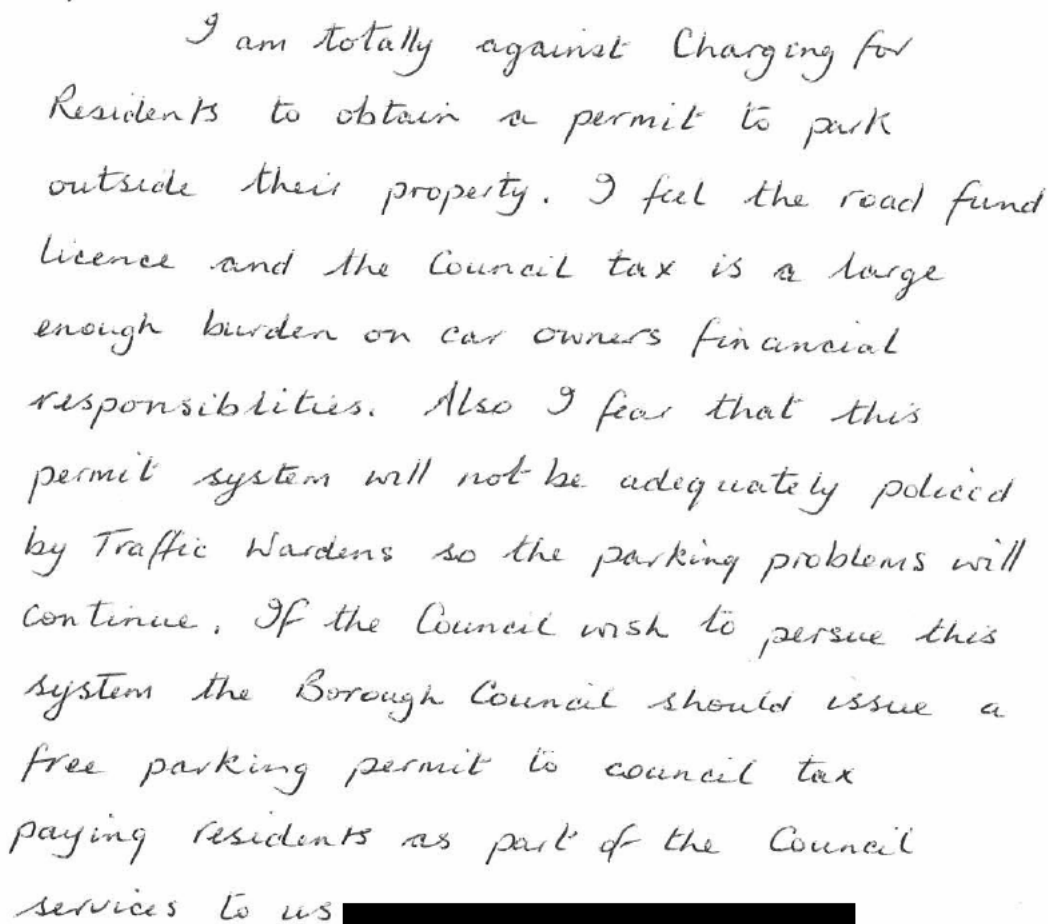 I am totally against Charging for
Residents to obtain a permit to park
outside their property. I feel the road fund
licence and the Council tax is a large
enough burden on car owners financial
responsiblities. Also I fear that this
permit system will not be adequately policed
by Traffic Wardens so the parking problems will
continue. If the Council wish to persue this
system the Borough Council should issue a
free parking permit to council tax
paying residents as part of the Council
services to us